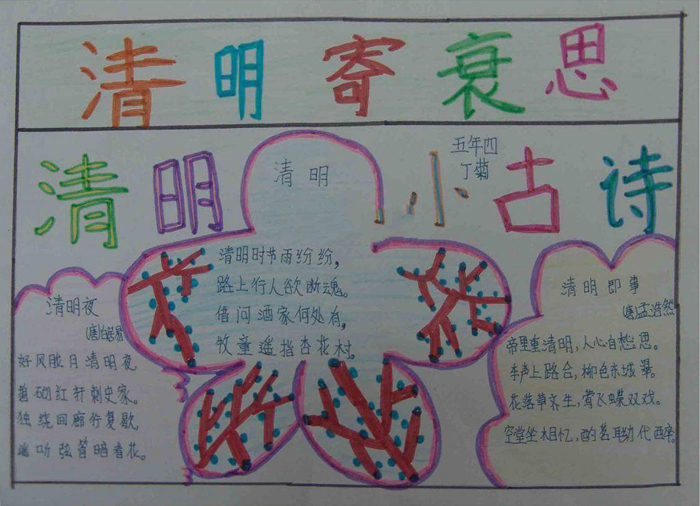 清明寄衰思
清明小古诗
五年四
丁菊
清明
清明时节雨纷纷，
路上行人欲断魂。
借问酒家何处有，
牧童遥指杏花村。
清明夜
(唐)白居易
好风胧月清明夜，
砌红轩刺史家。
独绕回廊行复歇，
听弦管暗看花。
清明即事
(唐)孟浩然
帝里重清明，人心自愁思。
车声上路合，柳色东城翠。
花落草齐生，莺飞蝶双戏。
空堂坐相忆，酌茗聊代醉。